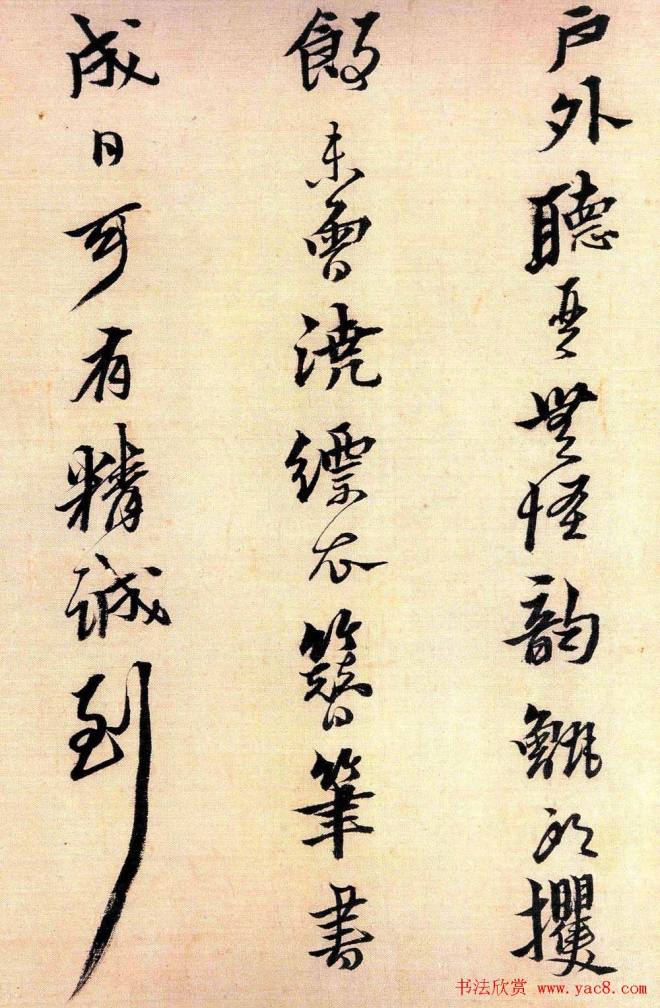 戶外聽無怪韻攫
未曾澆縹衣簪筆書
成日可有精誠到
书法欣赏 www.yac8.com